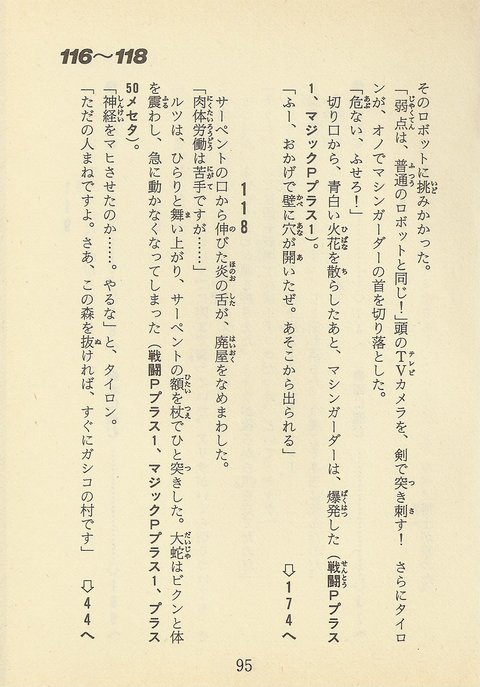 116〜118
そのロボットに挑みかかった。
「弱点は、普通のロボットと同じ！」頭のTVカメラを、剣で突き刺す！　さらにタイロ
ンが、オノでマシンガーダーの首を切り落とした。
「危ない、ふせろ！」
切り口から、青白い火花を散らしたあと、マシンガーダーは、爆発した（戦闘Pプラス
1、マジックPプラス1）。
「ふー、おかげで壁に穴が開いたぜ。あそこから出られる」　⇩174へ
118
サーペントの口から伸びた炎の舌が、廃屋をなめまわした。
「肉体労働は苦手ですが……」
ルツは、ひらりと舞い上がり、サーペントの額を杖でひと突きした。大蛇はビクンと体
を震わし、急に動かなくなってしまった（戦闘Pプラス1、マジックPプラス1、プラス
50メセタ）。
「神経をマヒさせたのか……。やるな」と、タイロン。
「ただの人まねですよ。さあ、この森を抜ければ、すぐにガシコの村です」　⇩44へ
95